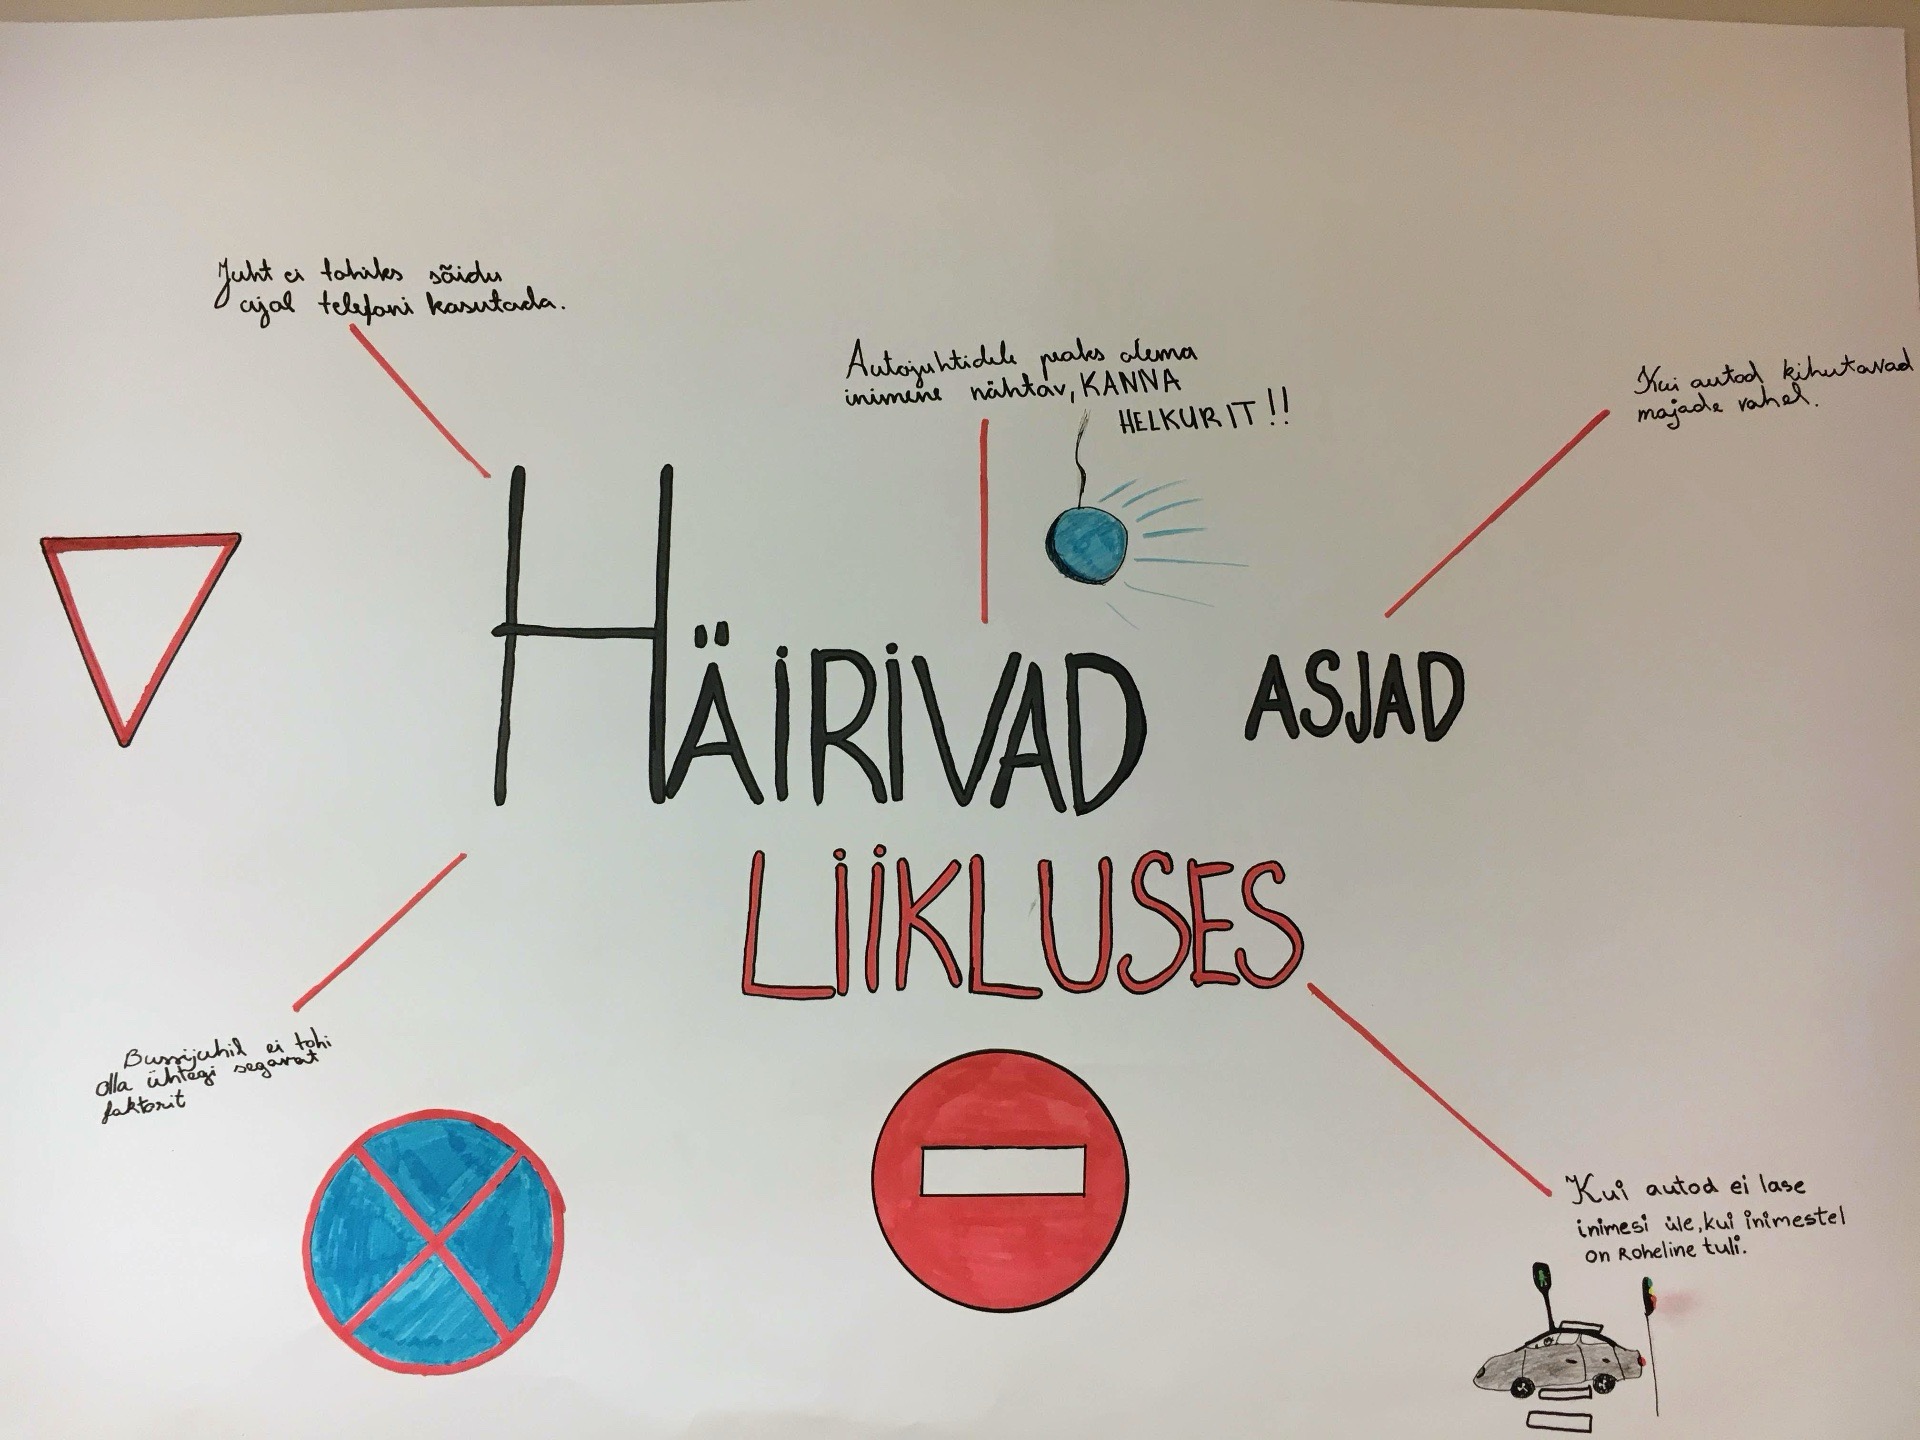 Juht ei tohiks sõidu
ajal telefoni kasutada.
Autojuhtidele peaks olema
inimene nähtav, KANNA
HELKURIT!!
Kui autod kihutavad
majade vahel.
HÄIRIVAD ASJAD
LIIKLUSES
Bussijuhil ei tohi
olla ühtegi segavat
faktorit
Kui autod ei lase
inimesi üle, kui inimestel
on Roheline tuli.